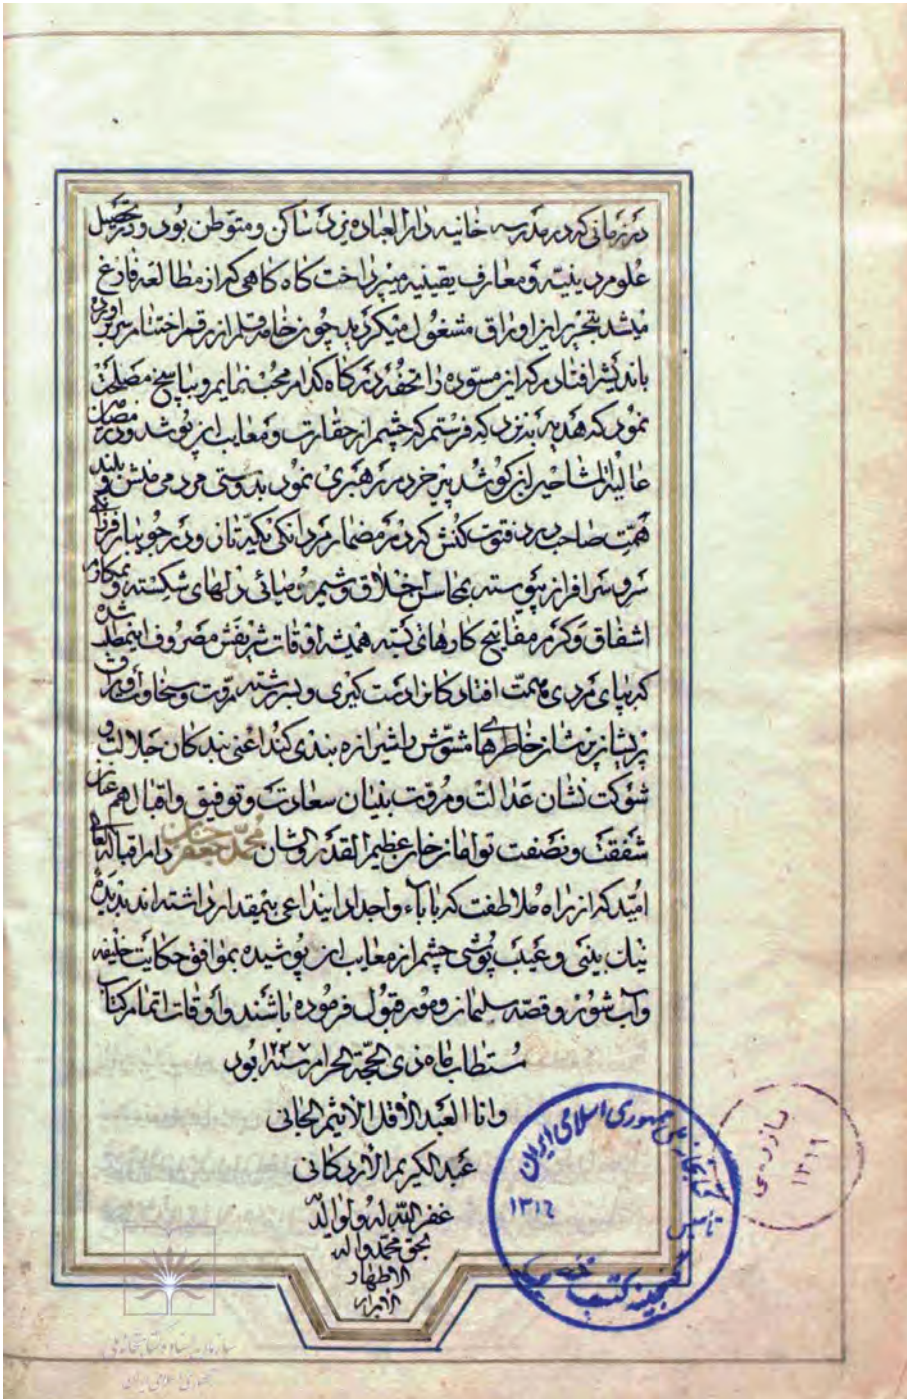 در زمانی که در مدرسه خانیه دارالعباده یزد ساکن و متوطن بود و در تحصیل
علوم دینیه و معارف یقینیه میپرداخت گاه گاهی که از مطالعه فارغ
میشد بتحریر این اوراق مشغول میگردید چون خامه قلم از رقم اختتام سر برآورده
باندیشه افتادم که این مسوده را تحفه درگاه کدام محب نمایم و بپاسخ مصلحت
نمود که هدیه بنزد که فرستم که چشم از حقارت و معایب این پوشد و در
عالیة المشاخیر لیز کوشد پیر خرد مرا رهبری نمود بدوستی مردمی منش و بلند
همت صاحب درد فتوت کنش که در مضمار مردانگی یکه تاز و در جویبار فرزانگی
سرو سرافراز پیوسته بمحاسن اخلاق و شیم مومیائی دلهای شکسته و بمکارم
اشفاق و کرم مفاتیح کارهای بسته همیشه اوقات شریفش مصروف اینمطلب شده
که بپای مردی همت افتادگانرا دست گیری و بسررشته مروت و سخاوت اوراق
پریشان خاطرهای مشوش را شیرازه بندی کند اعنی بندگان جلالت و
شوکت نشان عدالت و مروت بنیان سعادت و توفیق و اقبال هم عنان
شفقت و نصفت توامان خان عظیم القدر والشان محمد جعفر خان دام اقباله العالی
امید که از راه ملاطفت که بآباء و اجداد اینداعی بیمقدار داشته اند بدیده
نیک بینی و عیب پوشی چشم از معایب این پوشیده بموافق حکایت خلیفه
و آب شور و قصه سلیمان و مور قبول فرموده باشند و اوقات اتمام کتاب
مستطاب ماه ذی الحجة الحرام سنه ۱۲۳۷ بود
وانا العبد الاقل الاثیم الجانی
عبدالکریم الاردکانی
غفر الله له ولوالدیه
بحق محمد وآله
الاطهار
الابرار
کتابخانه ملی جمهوری اسلامی ایران
تأسیس
۱۳۱۶
گنجینه کتب
بازرسی
۱۳۶۹
سازمان اسناد و کتابخانه ملی
جمهوری اسلامی ایران